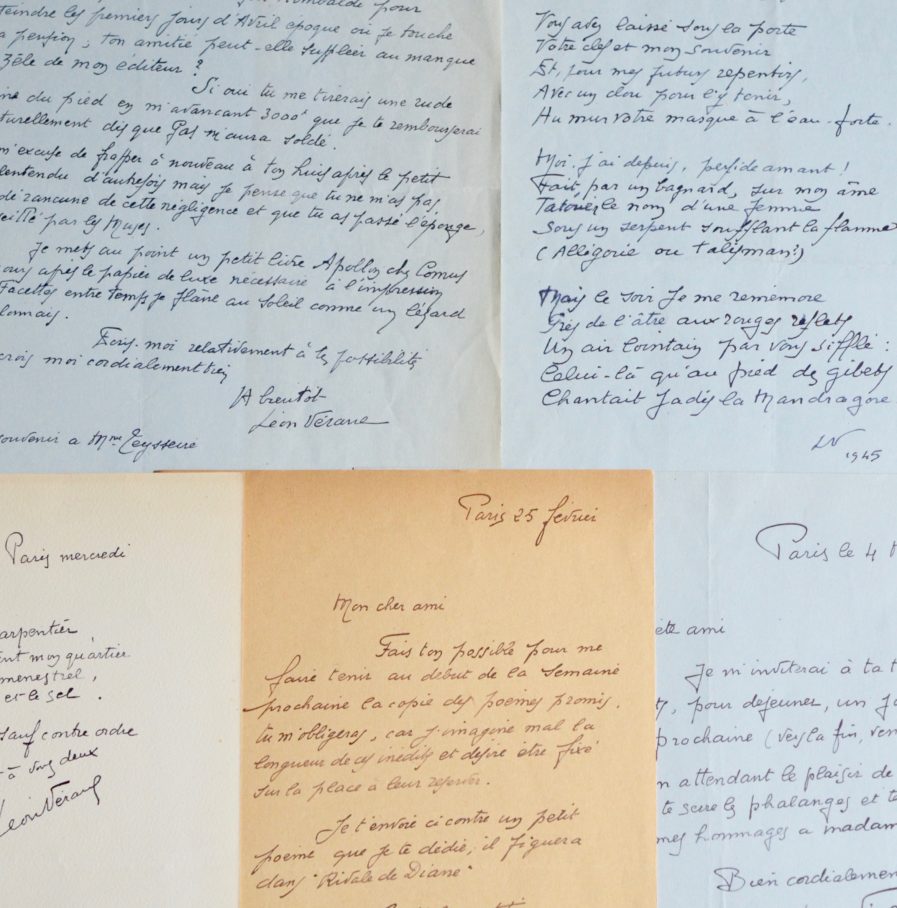 pour
teindre les premiers jours d'Avril époque où je touche
a pension; ton amitié peut-elle suppléer au manque
zèle de mon éditeur ?
Si oui tu me tirerais une rude
ine du pied en m'avancant 3000f que je te rembourserai
turellement dès que Pas m'aura soldé.
m'excuse de frapper à nouveau à ton huis après le petit
lentendu d'autrefois mais je pense que tu ne m'as pas
dé rancune de cette négligence et que tu as passé l'éponge,
seillé par les Muses.
Je mets au point un petit livre Apollon chez Comus
ours après le papier de luxe nécessaire à l'impression
Facettes entre temps je flâne au soleil comme un lézard
lonnais.
Ecris-moi relativement à la possibilité
crois moi cordialement tien
A bientôt
Léon Vérane
souvenir a Mme Teysseire
Vous avez laissé sous la porte
Votre clef et mon souvenir
Et, pour mes futurs repentirs,
Avec un clou pour l'y tenir,
Au mur votre masque à l'eau-forte.
Moi, j'ai depuis, perfide amant !
Fait, par un bagnard, sur mon âme
Tatouer le nom d'une femme
Sous un serpent soufflant la flamme
(Allégorie ou talisman?)
Mais le soir je me remémore
Près de l'âtre aux rouges reflets
Un air lointain par vous sifflé :
Celui-là qu'au pied des gibets
Chantait jadis la Mandragore.
LV
1945
Paris mercredi
arpentier
ent mon quartier
menestrel,
et le sel.
sauf contre ordre
à vous deux
Léon Vérane
Paris 25 février
Mon cher ami
Fais ton possible pour me
faire tenir au début de la semaine
prochaine la copie des poèmes promis.
tu m'obligeras, car j'imagine mal la
longueur de ces inédits et désire etre fixé
sur la place à leur reserver.
Je t'envoie ci contre un petit
poème que je te dédie, il figurera
dans "Rivale de Diane"
Paris le 4
ami
Je m'inviterai à ta t
pour dejeuner, un j
prochaine (vers la fin, ven
n attendant le plaisir de
te serre les phalanges et te
mes hommages a madam
Bien cordialemen